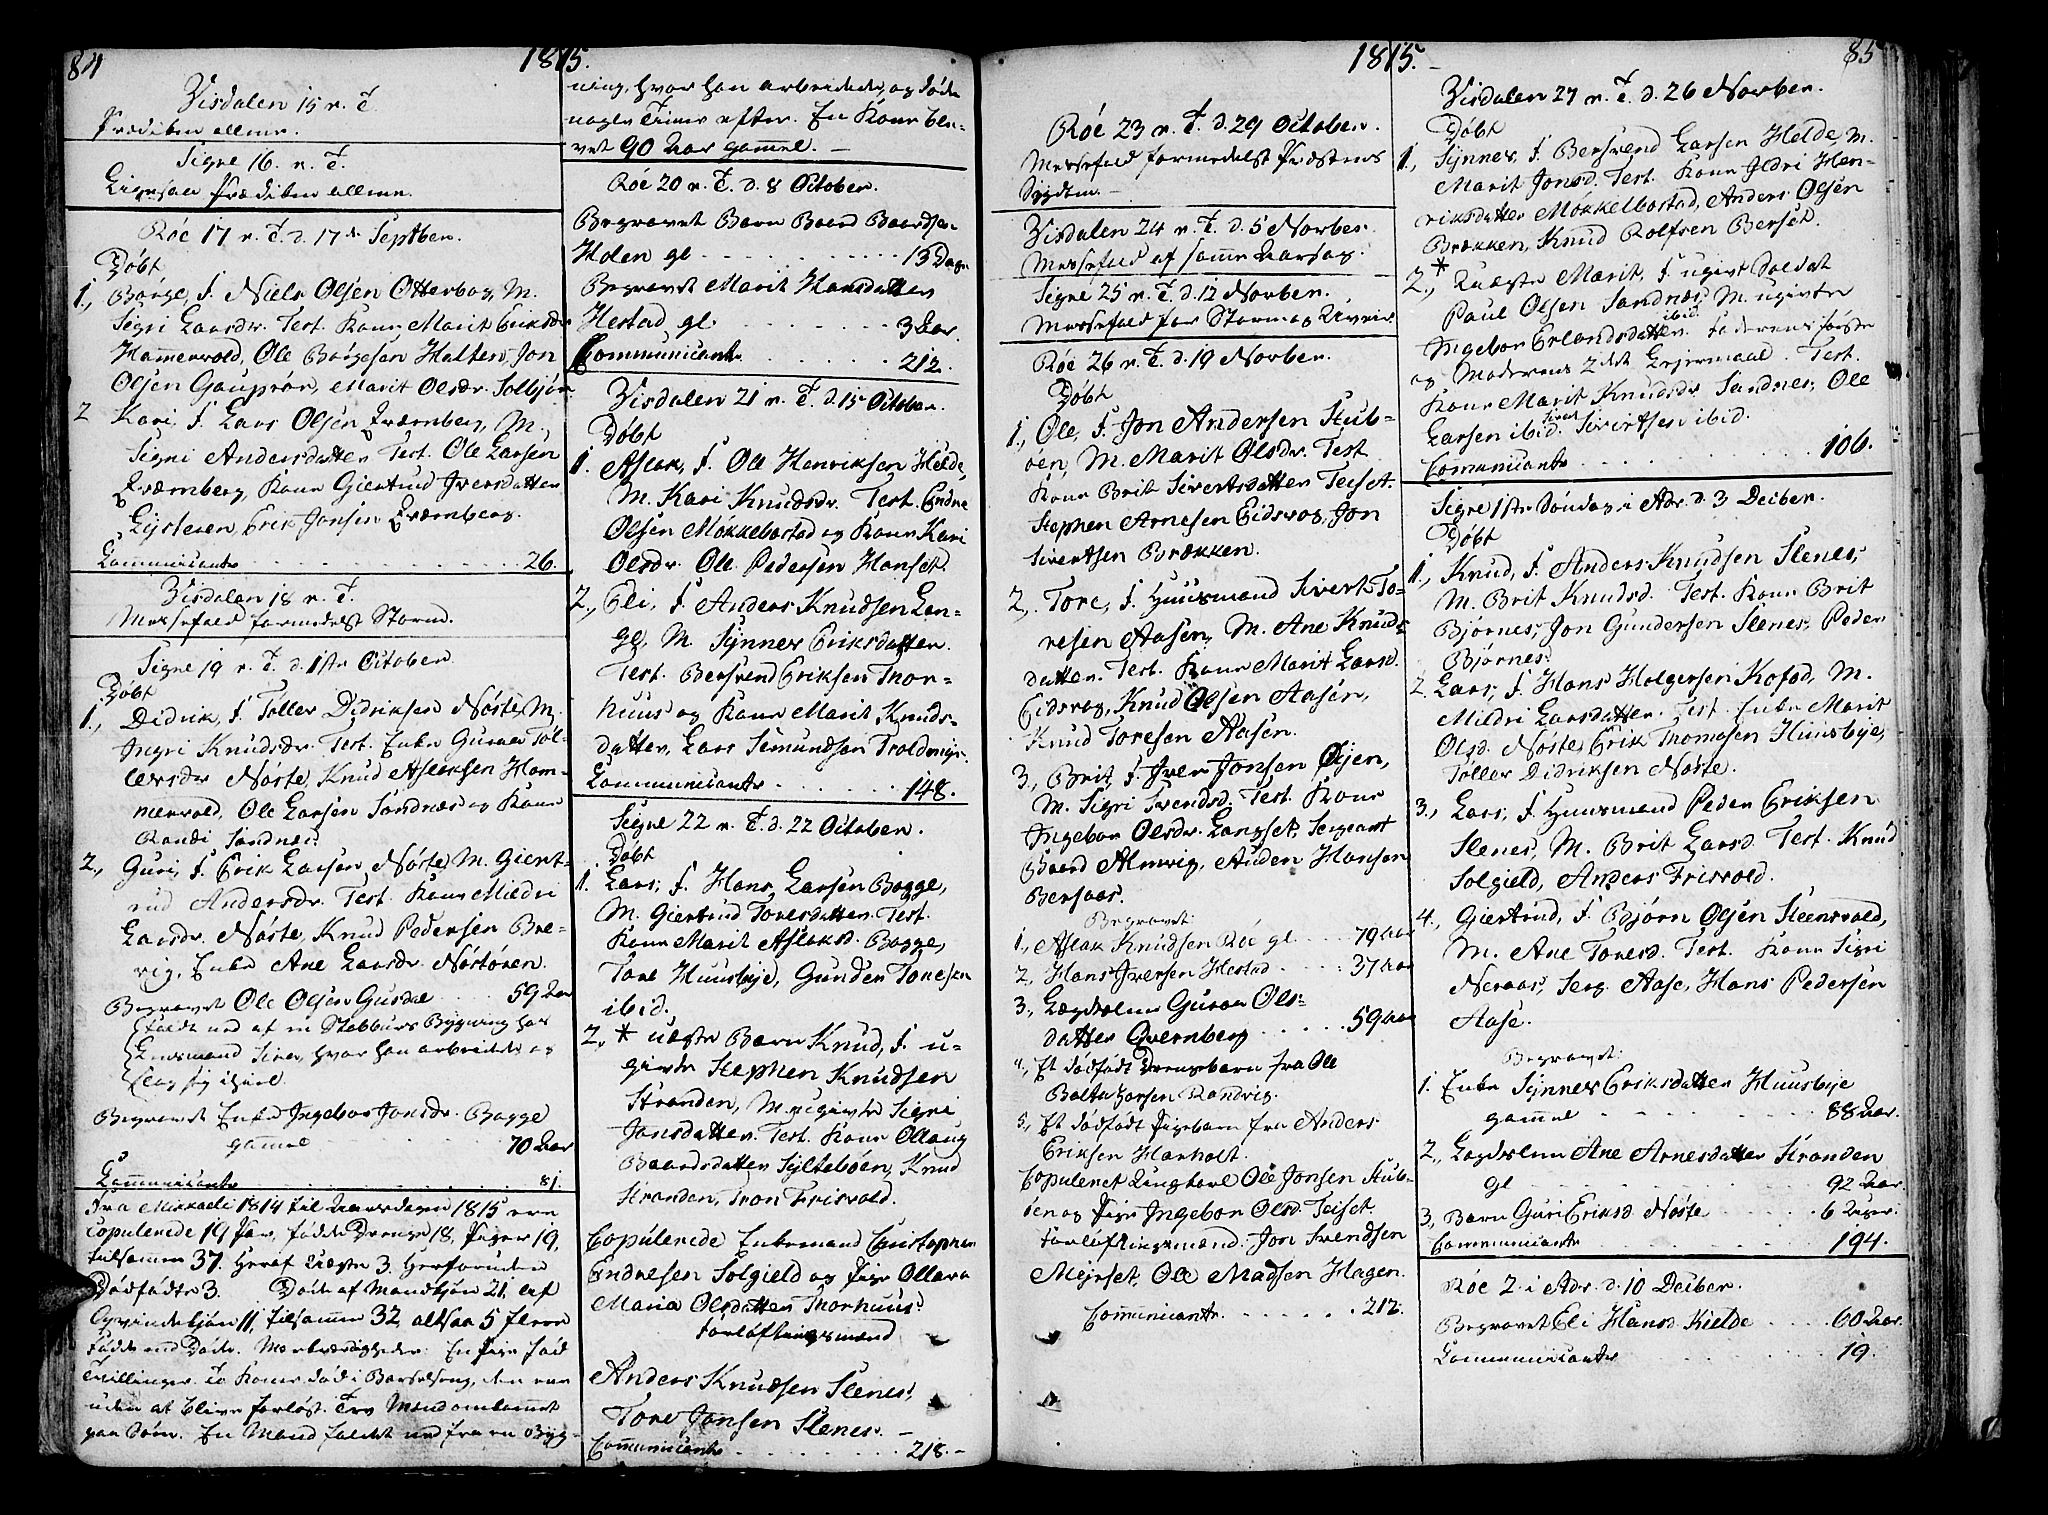 84
1815.
Visdalen 15 n. T.
Prædiken allene.
Sigre 16. n. T.
Ligesaa Prædiken allene.
Röe 17 n. T. d. 17de Septber.
Döbt
1., Börge, F. Niels Olsen Otterbog, M.
Sigri Larsdr. Test. Kone Marit Eriksdr
Hammervold, Ole Börgesen Halten, Jon
Olsen Gauprör, Marit Olsdr. Solbjör
2 Kari, F. Lars Olsen Qværnberg, M.
Sigri Andersdatter. Test. Ole Larsen
Qværnberg, Kone Giertrud Iversdatter
Erik Jonsen Qværnberg.
Communicanter 26.
Visdalen 18 n. T.
Messefald formedelst Storm.
Sigre 19 n. T. d. 1ste October.
Döbt
1., Didrik, F. Töller Didriksen Nöste, M.
Ingri Knudsdr. Test. Enke Guroe Töl-
lersdr Nöste, Knud Aslaksen Ham-
mervold, Ole Larsen Sandnæs og Kone
Randi Sandnes.
2., Guri, F. Erik Larsen Nöste, M. Giert-
rud Andersdr. Test. Kone Mildri
Larsdr. Nöste, Knud Pedersen Bre-
vig, Enke Ane Larsdr. Nöstören.
Begravet Ole Olsen Gusdal 59 Aar
faldt ned af en Stabburs Bygning hos
Lensmand Sira, hvor han arbeidede og
slog sig ihiel.
Begravet Enke Ingebor Jonsdr. Bogge
gammel 70 Aar
Communicanter 81.
Fra Mikkaeli 1814 til Aarsdagen 1815 ere
Copulerede 19 Par, födde Drenge 18, Piger 19,
tilsammen 37. Heraf Uægte 3. Herforuden
Dödfödte 3. Döde af Mandkjön 21, af
Qvindekjön 11, tilsammen 32, altsaa 5 flere
födde end Döde. Mærkværdigheder: En Pige föd
Trillinger. To Koner döde i Barselseng, den ene
uden at blive forlöst. Tre Mænd omkommet
paa Söen. En Mand faldet ned fra en Byg-
ning, hvor han arbeidede, og döde
nogle Timer efter. En Kone ble-
vet 90 Aar gammel. —
Röe 20 n. T. d. 8 October.
Begravet Barn Baard Baardsen
Holen gl. 13 Dage
Begravet Marit Hansdatter
Hestad gl. 3 Aar.
Communicanter 212.
Visdalen 21 n. T. d. 15 October.
Döbt
1. Aslak, F. Ole Henriksen Helde,
M. Kari Knudsdr. Test. Endre
Olsen Mokkelbostad og Kone Kari
Olsdr. Ole Pedersen Hanset.
2., Eli, F. Anders Knudsen Lan-
ge, M. Synnev Eriksdatter.
Test. Bersvend Eriksen Thor-
huus og Kone Marit Knuds-
datter, Lars Semundsen Troldmyr.
Communicanter 148.
Sigre 22 n. T. d. 22 October.
Döbt
1. Lars, F. Hans Larsen Bogge,
M. Giertrud Toresdatter. Test.
Kone Marit Aslaksd. Bogge,
Tore Huusbye, Gunder Toresen
ibid.
2., * uægte Barn Knud, F. u-
givte Stephen Knudsen
Stranden, M. ugivte Sigri
Jonsdatter. Test. Kone Ollaug
Baardsdatter Sylteböen, Knud
Stranden, Tron Frisvold.
Copulerede Enkemand Christopher
Endresen Solgield og Pige Ollava
Maria Olsdatter Thorhuus.
Forlöftningsmænd
Anders Knudsen Slenes,
Tore Jonsen Slenes. —
Communicanter 218.
1815.
85
Röe 23 n. T. d. 29 October.
Messefald formedelst Præstens
Sygdom. —
Visdalen 24 n. T. d. 5 Novber.
Messefald af samme Aarsag.
Sigre 25 n. T. d. 12 Novber.
Messefald for Storm og Uveir
Röe 26 n. T. d. 19 Novber.
Döbt
1., Ole, F. Jon Andersen Stub-
öen, M. Marit Olsdr. Test.
Kone Brit Sivertsdatter Teiset.
Stephen Arnesen Eidsvog, Jon
Sivertsen Brækken.
2., Tore, F. Huusmand Sivert To-
resen Aasen, M. Ane Knuds-
datter. Test. Kone Marit Larsd.
Eidsvog, Knud Olsen Aasen,
Knud Toresen Aasen.
3., Brit, F. Iver Jonsen Öyen,
M. Sigri Svendsd. Test. Kone
Ingebor Olsdr. Langset, Sergeant
Baard Almvig, Auden Hansen
Bersaas.
Begravet:
1., Aslak Knudsen Röe gl. 79 Aar
2., Hans Iversen Hestad 37 Aar
3., Lægdslem Guroe Ols-
datter Qvernberg 59 Aar
4., Et dödfödt Drengebarn fra Ole
Baltazarsen Randvig.
5., Et dödfödt Pigebarn fra Anders
Eriksen Harholt.
Copuleret Ungkarl Ole Jonsen Stub-
öen og Pige Ingebor Olsd. Teiset.
Forlöftningsmænd: Jon Svendsen
Meisset, Ole Madsen Hagen.
Communicanter 212.
Visdalen 27 n. T. d. 26 Novber.
Döbt
1., Synnev, F. Bersvend Larsen Helde, M.
Marit Jonsd. Test. Kone Ildri Hen-
riksdatter Mokkelbostad, Anders Olsen
Brækken, Knud Rolfsen Berset.
2., * Uægte Marit, F. ugivt Soldat
Paul Olsen Sandnæs, M. ugivte
Ingebor Erlandsdatter ibid. Faderens förste
og Moderens 2det Leiermaal. Test.
Kone Marit Knudsdr Sandnes, Ole
Larsen ibid. Sivert Sivertsen ibid.
Communicanter 106.
Sigre 1ste Söndag i Adv. d. 3 Decber.
Döbt
1., Knud, F. Anders Knudsen Slenes,
M. Brit Knudsd. Test. Kone Brit
Björnes, Jon Gundersen Slenes, Peder
Björnes.
2. Lars, F. Hans Holgersen Kofod, M.
Mildri Larsdatter. Test. Enke Marit
Olsd. Nöste, Erik Thomasen Huusbye,
Töller Didriksen Nöste.
3., Lars, F. Huusmand Peder Eriksen
Slenes, M. Brit Larsd. Test. Knud
Solgield, Anders Frisvold.
4., Giertrud, F. Björn Olsen Steensvold,
M. Ane Toresd. Test. Kone Sigri
Neraas, Serg. Aase, Hans Pedersen
Aase.
Begravet:
1. Enke Synnev Eriksdatter Huusbye
gammel 88 Aar.
2., Lægdslem Ane Arnesdatter Stranden
gl. 92 Aar.
3., Barn Guri Eriksd. Nöste 6 Uger.
Communicanter 194.
Röe 2. i Adv. d. 10 Decber.
Begravet Eli Hansd. Kielde 60 Aar.
Communicanter 19.